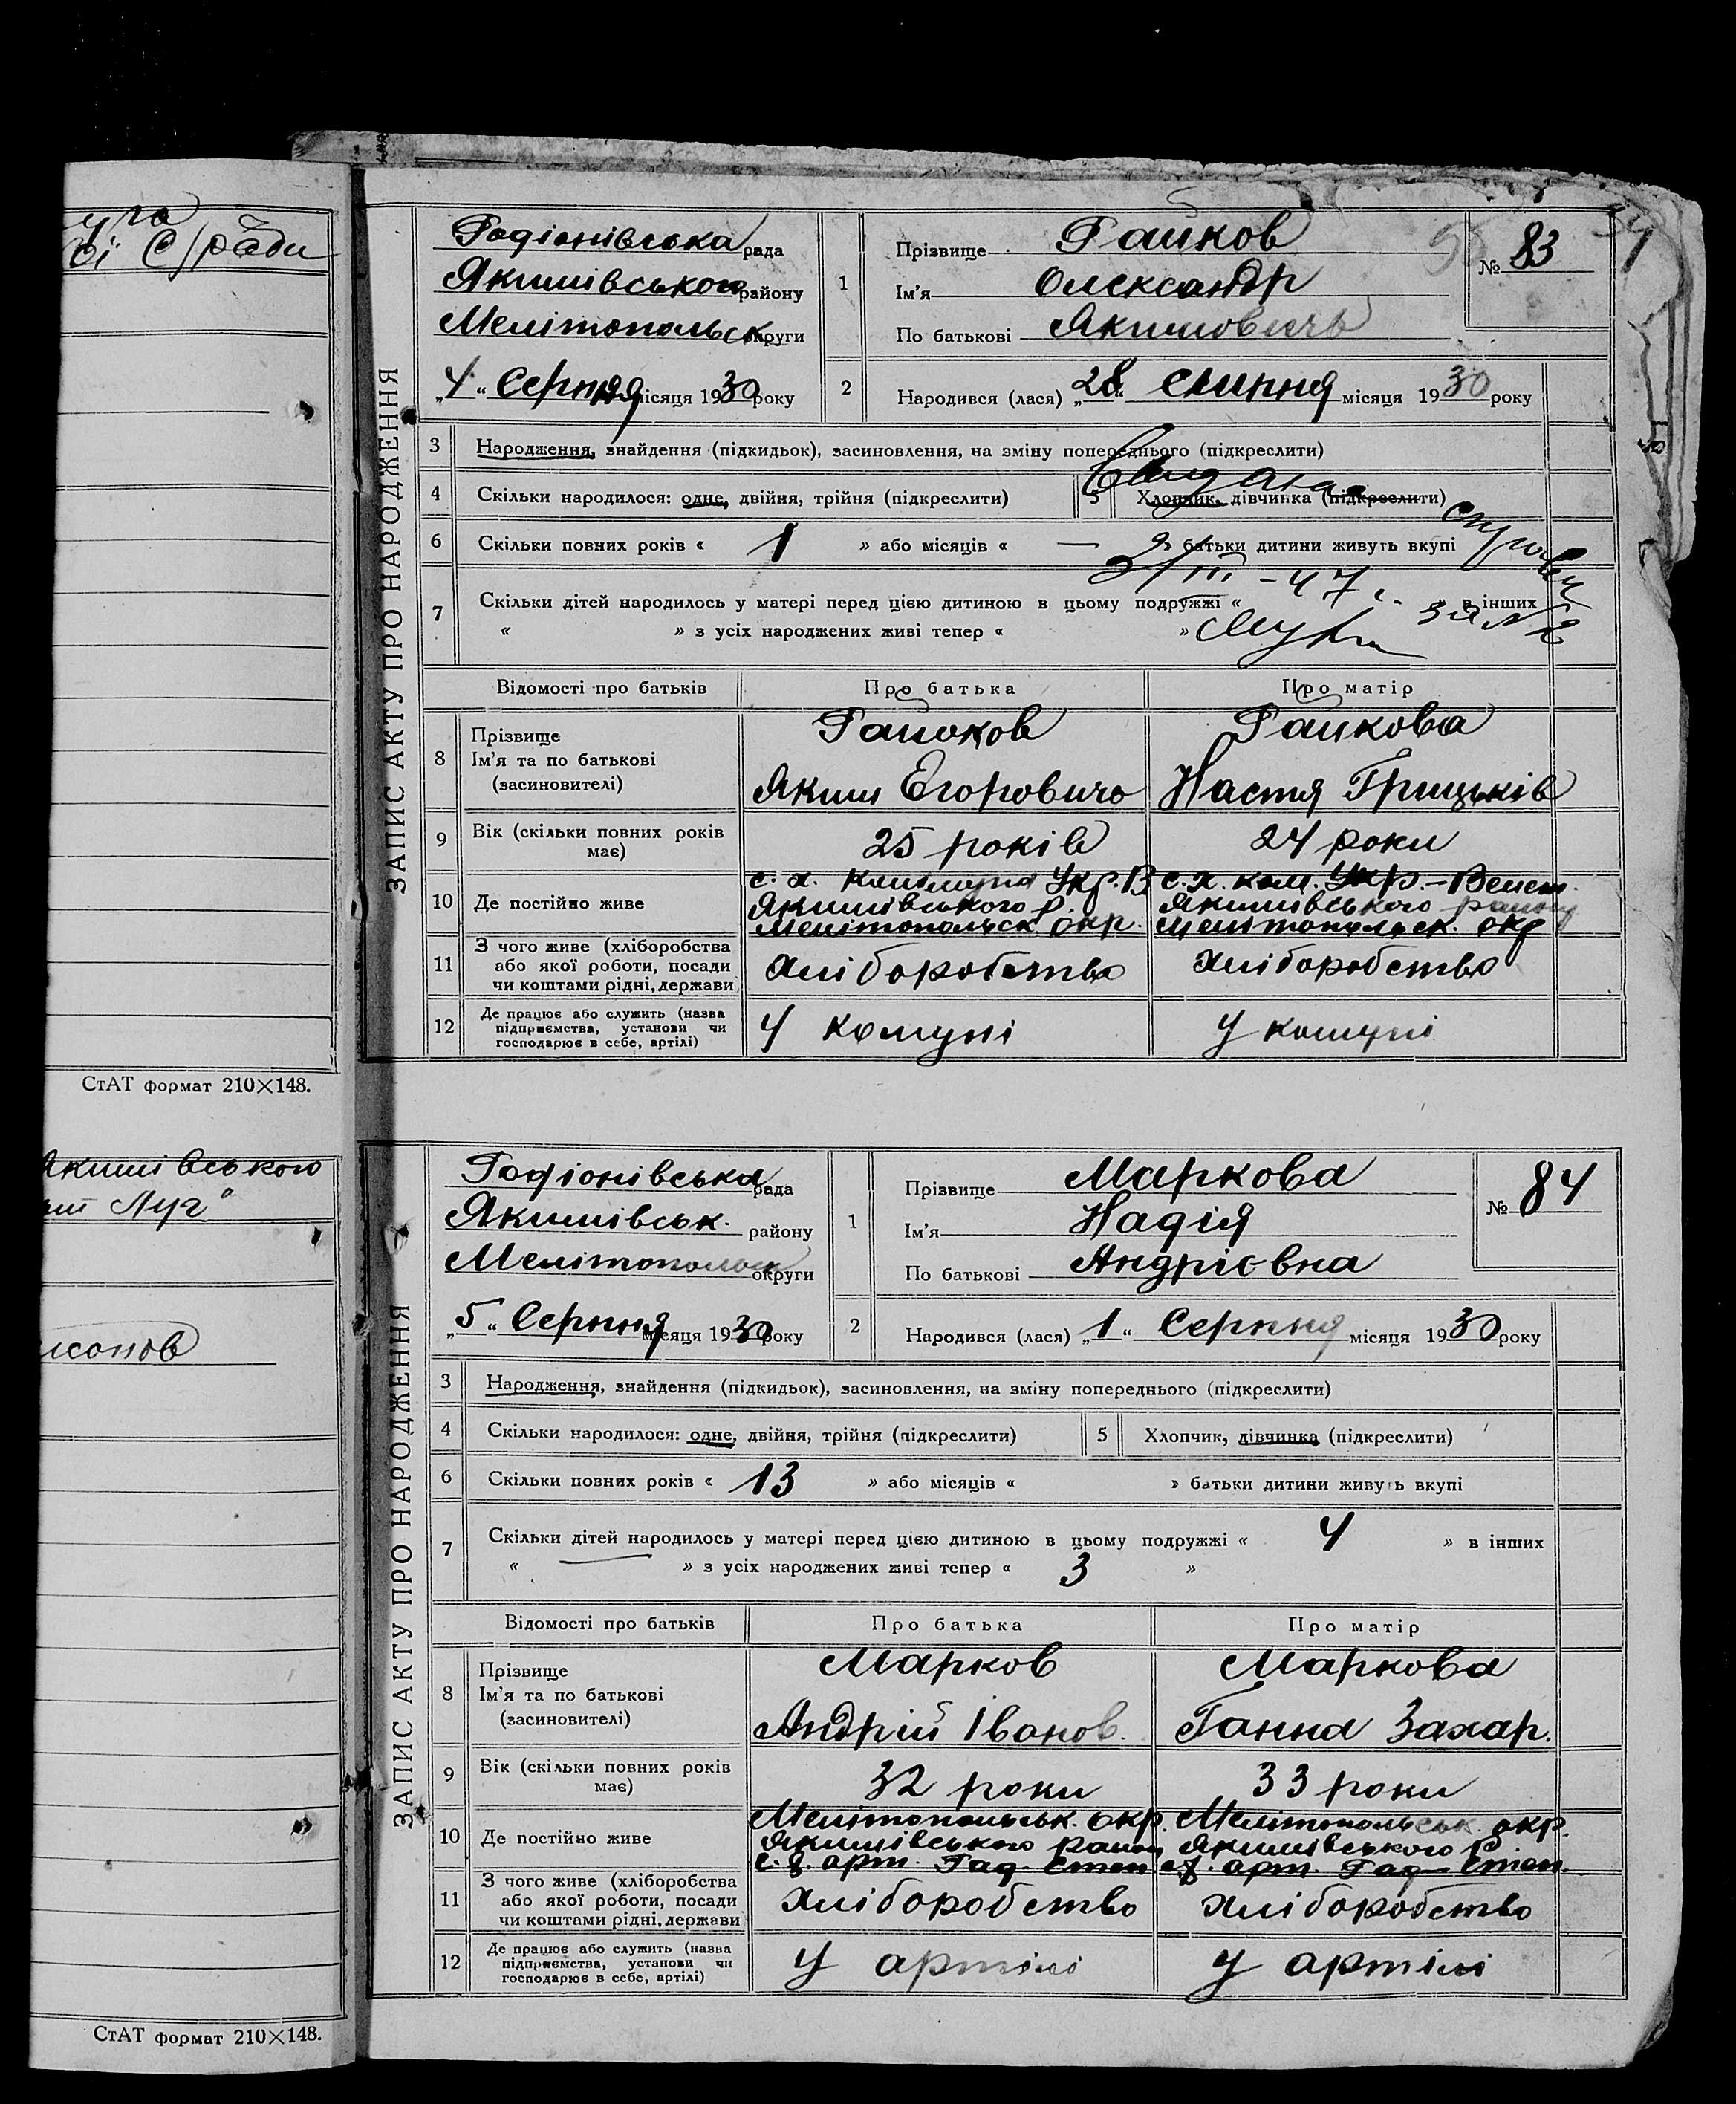 сі С/ради
СтАТ формат 210×148.
Якимівського
Луг"
СтАТ формат 210×148.
ЗАПИС АКТУ ПРО НАРОДЖЕННЯ
Родіонівська рада
Якимівського району
Мелітопольськ округи
„4" Серпня місяця 1930 року
1
Прізвище Райков
Ім'я Олександр
По батькові Якимовичь
№ 83
2
Народився (лася) „28" Липня місяця 1930 року
3 Народження, знайдення (підкидьок), засиновлення, на зміну попереднього (підкреслити)
4 Скільки народилося: одне, двійня, трійня (підкреслити) 5 Хлопчик, дівчинка (підкреслити)
6 Скільки повних років « 1 » або місяців « — » батьки дитини живуть вкупі
7 Скільки дітей народилось у матері перед цією дитиною в цьому подружжі « » в інших
« » з усіх народжених живі тепер « »
III – 47 г.
Відомості про батьків Про батька Про матір
8 Прізвище
Ім'я та по батькові
(засиновителі)
Райков
Яким Єгоровичь
Райкова
Настя Грицьків
9 Вік (скільки повних років має) 25 років 24 роки
10 Де постійно живе
с. х. Коммуна Укр. В
Якимівського р.
Мелітопольск. окр.
с. х. ком. Укр.–Велет.
Якимівського району
Мелітопольск. окр
11 З чого живе (хліборобства
або якої роботи, посади
чи коштами рідні, держави
хліборобство хліборобство
12 Де працює або служить (назва
підприємства, установи чи
господарює в себе, артілі)
У комуні У комуні
ЗАПИС АКТУ ПРО НАРОДЖЕННЯ
Родіонівська рада
Якимівськ. району
Мелітопольськ округи
„5" Серпня місяця 1930 року
1
Прізвище Маркова
Ім'я Надія
По батькові Андрієвна
№ 84
2
Народився (лася) „1" Серпня місяця 1930 року
3 Народження, знайдення (підкидьок), засиновлення, на зміну попереднього (підкреслити)
4 Скільки народилося: одне, двійня, трійня (підкреслити) 5 Хлопчик, дівчинка (підкреслити)
6 Скільки повних років « 13 » або місяців « » батьки дитини живуть вкупі
7 Скільки дітей народилось у матері перед цією дитиною в цьому подружжі « 4 » в інших
« — » з усіх народжених живі тепер « 3 »
Відомості про батьків Про батька Про матір
8 Прізвище
Ім'я та по батькові
(засиновителі)
Марков
Андрій Іванов.
Маркова
Ганна Захар.
9 Вік (скільки повних років має) 32 роки 33 роки
10 Де постійно живе
Мелітопольськ. окр.
Якимівського району
арт. Рад– Степ
Мелітопольськ. окр.
Якимівського р.
арт. Рад– Степ.
11 З чого живе (хліборобства
або якої роботи, посади
чи коштами рідні, держави
хліборобство хліборобство
12 Де працює або служить (назва
підприємства, установи чи
господарює в себе, артілі)
У артілі У артілі